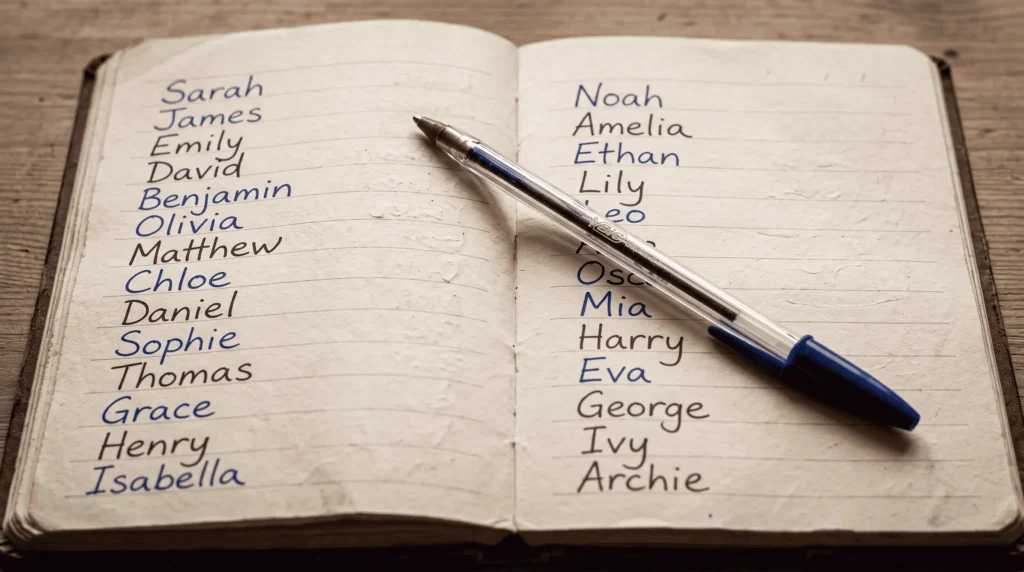 Sarah
James
Emily
David
Benjamin
Olivia
Matthew
Chloe
Daniel
Sophie
Thomas
Grace
Henry
Isabella
Noah
Amelia
Ethan
Lily
Leo
Mia
Harry
Eva
George
Ivy
Archie